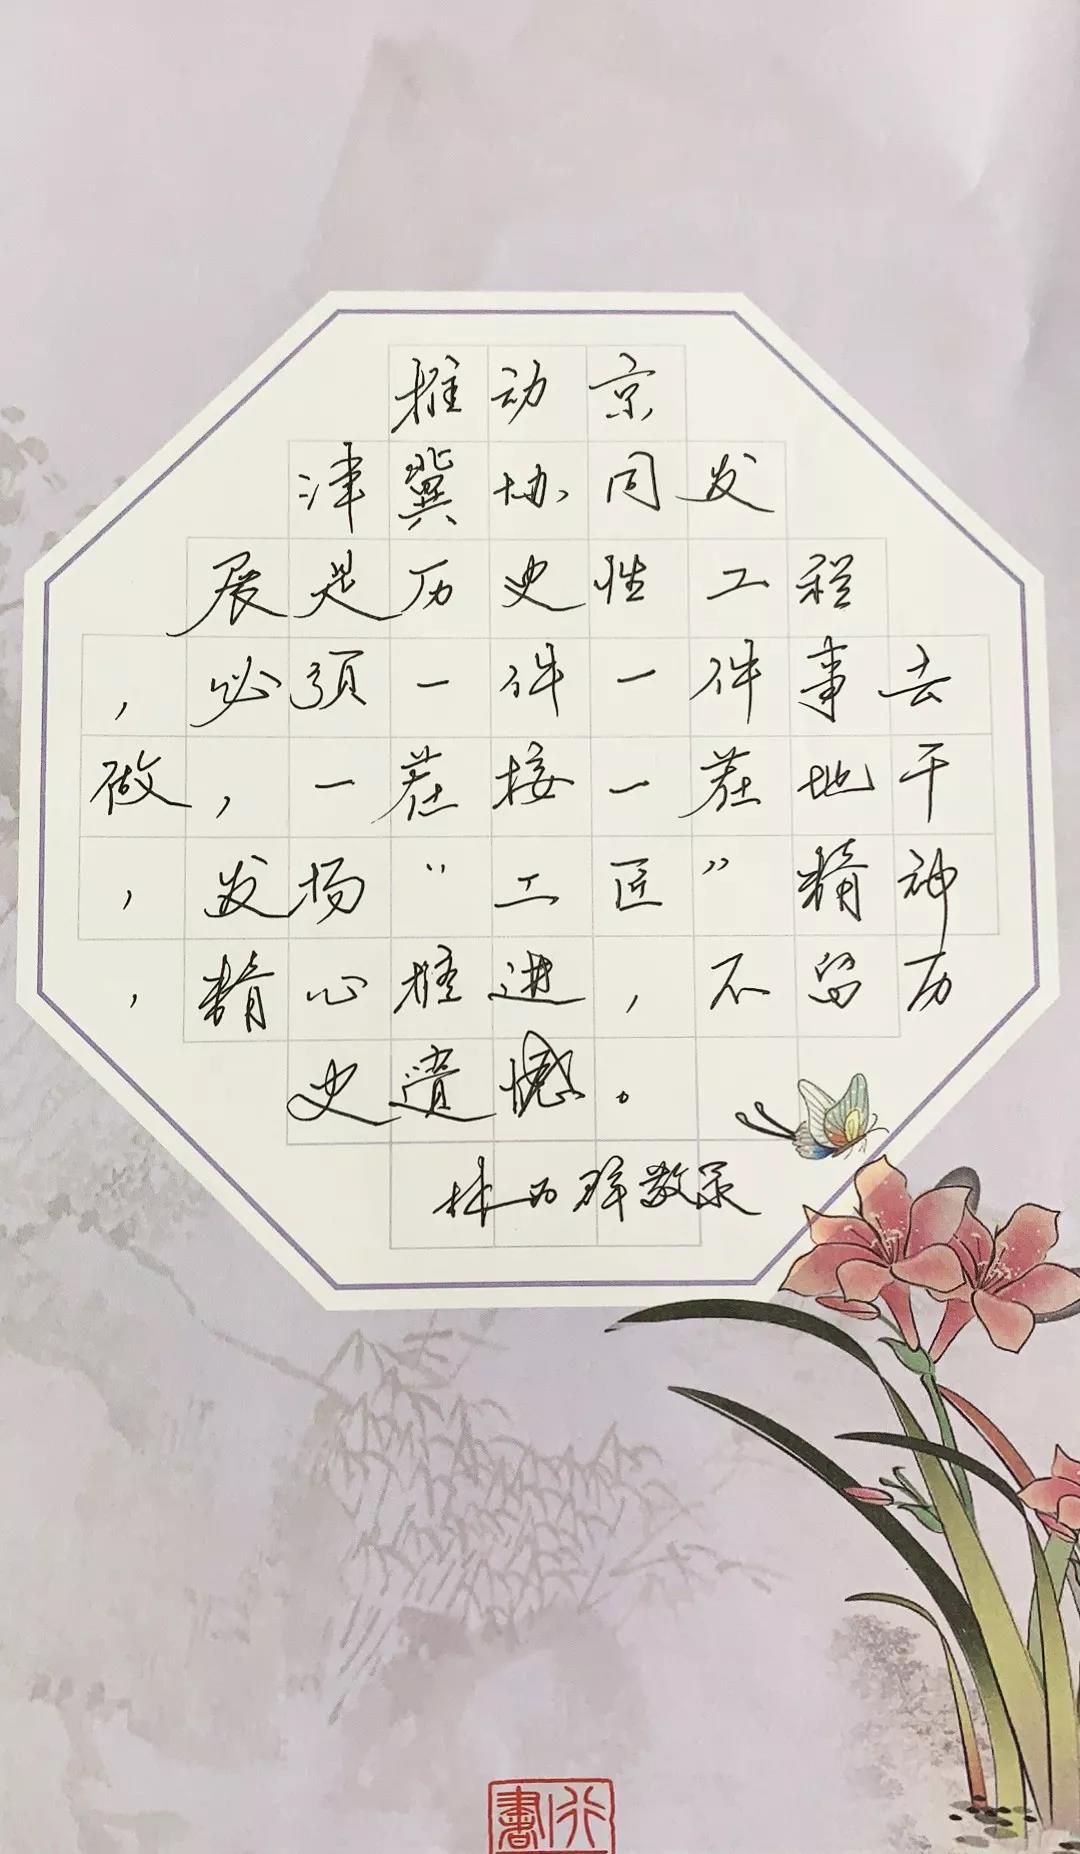 推动京
津冀协同发
展是历史性工程
，必须一件一件事去
做，一茬接一茬地干
，发扬“工匠”精神
，精心推进，不留历
史遗憾。
林
敬录
書行